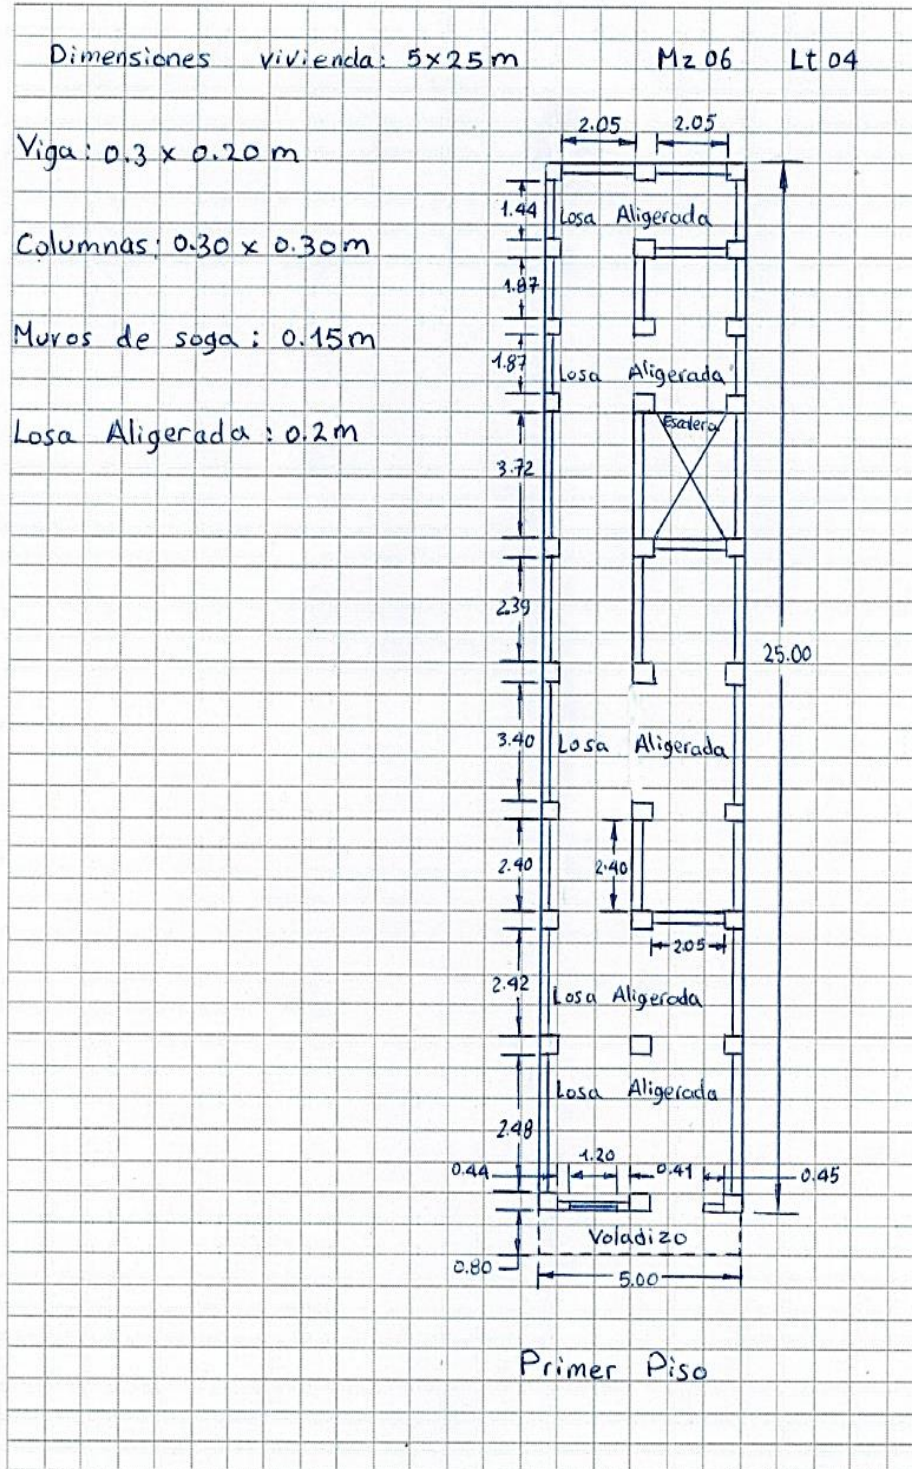 Dimensiones vivienda: 5x25m Mz 06 Lt 04
Viga: 0.3 x 0.20 m
Columnas: 0.30 x 0.30m
Muros de soga: 0.15m
Losa Aligerada: 0.2m
2.05 2.05
1.44 Losa Aligerada
1.87
1.87 Losa Aligerada
Escalera
3.72
2.39
25.00
3.40 Losa Aligerada
2.40 2.40
2.05
2.42 Losa Aligerada
Losa Aligerada
2.48
0.44 1.20 0.41 0.45
Voladizo
0.80 5.00
Primer Piso